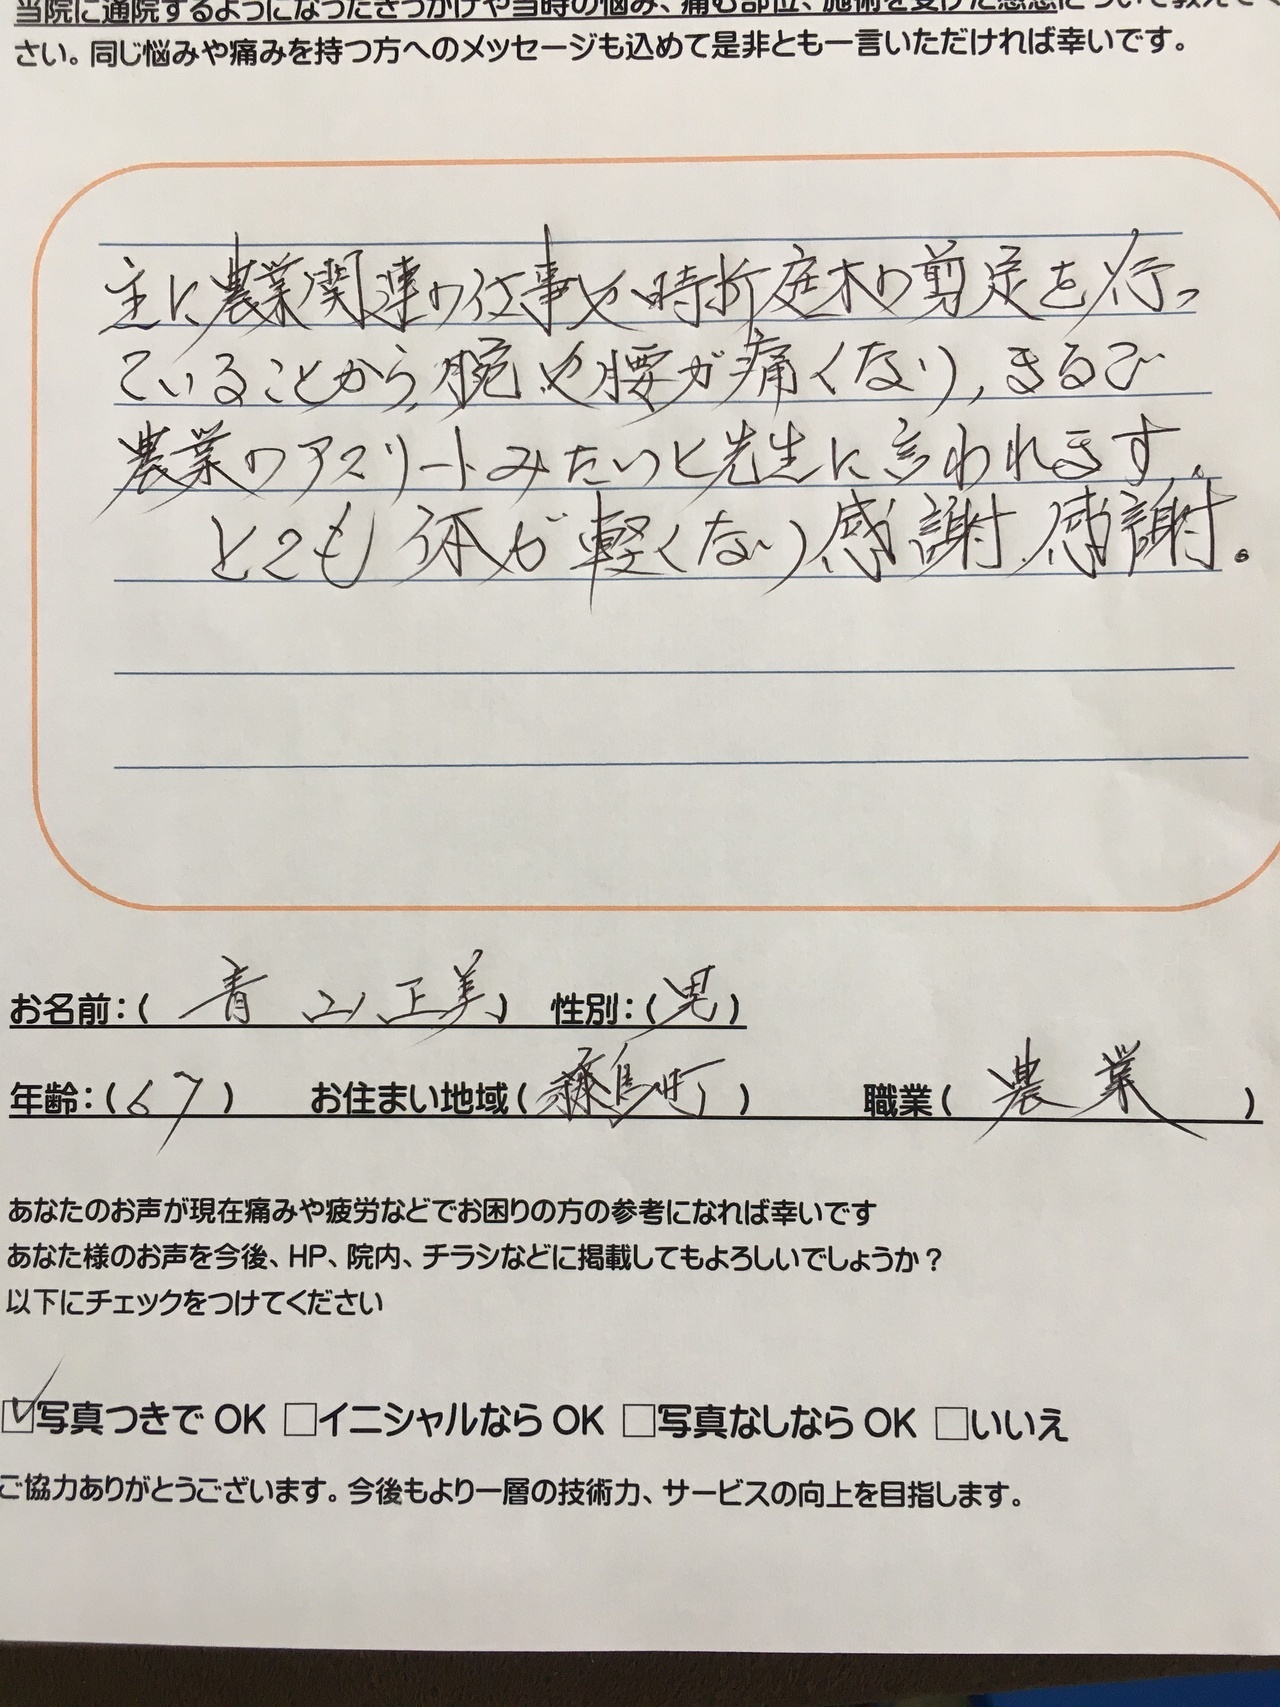 当院に通院するようになったきっかけや当時の悩み、痛む部位、施術を受けた感想について教えてく
さい。同じ悩みや痛みを持つ方へのメッセージも込めて是非とも一言いただければ幸いです。
主に農業関連の仕事や時折庭木の剪定を行っ
ていることから、腕や腰が痛くなり、まるで
農業のアスリートみたいと先生に言われます。
とても体が軽くなり感謝、感謝。
お名前:( 青山正美 ) 性別:(男)
年齢:(67) お住まい地域( 町 ) 職業( 農業 )
あなたのお声が現在痛みや疲労などでお困りの方の参考になれば幸いです
あなた様のお声を今後、HP、院内、チラシなどに掲載してもよろしいでしょうか？
以下にチェックをつけてください
☑写真つきで OK □イニシャルなら OK □写真なしなら OK □いいえ
ご協力ありがとうございます。今後もより一層の技術力、サービスの向上を目指します。